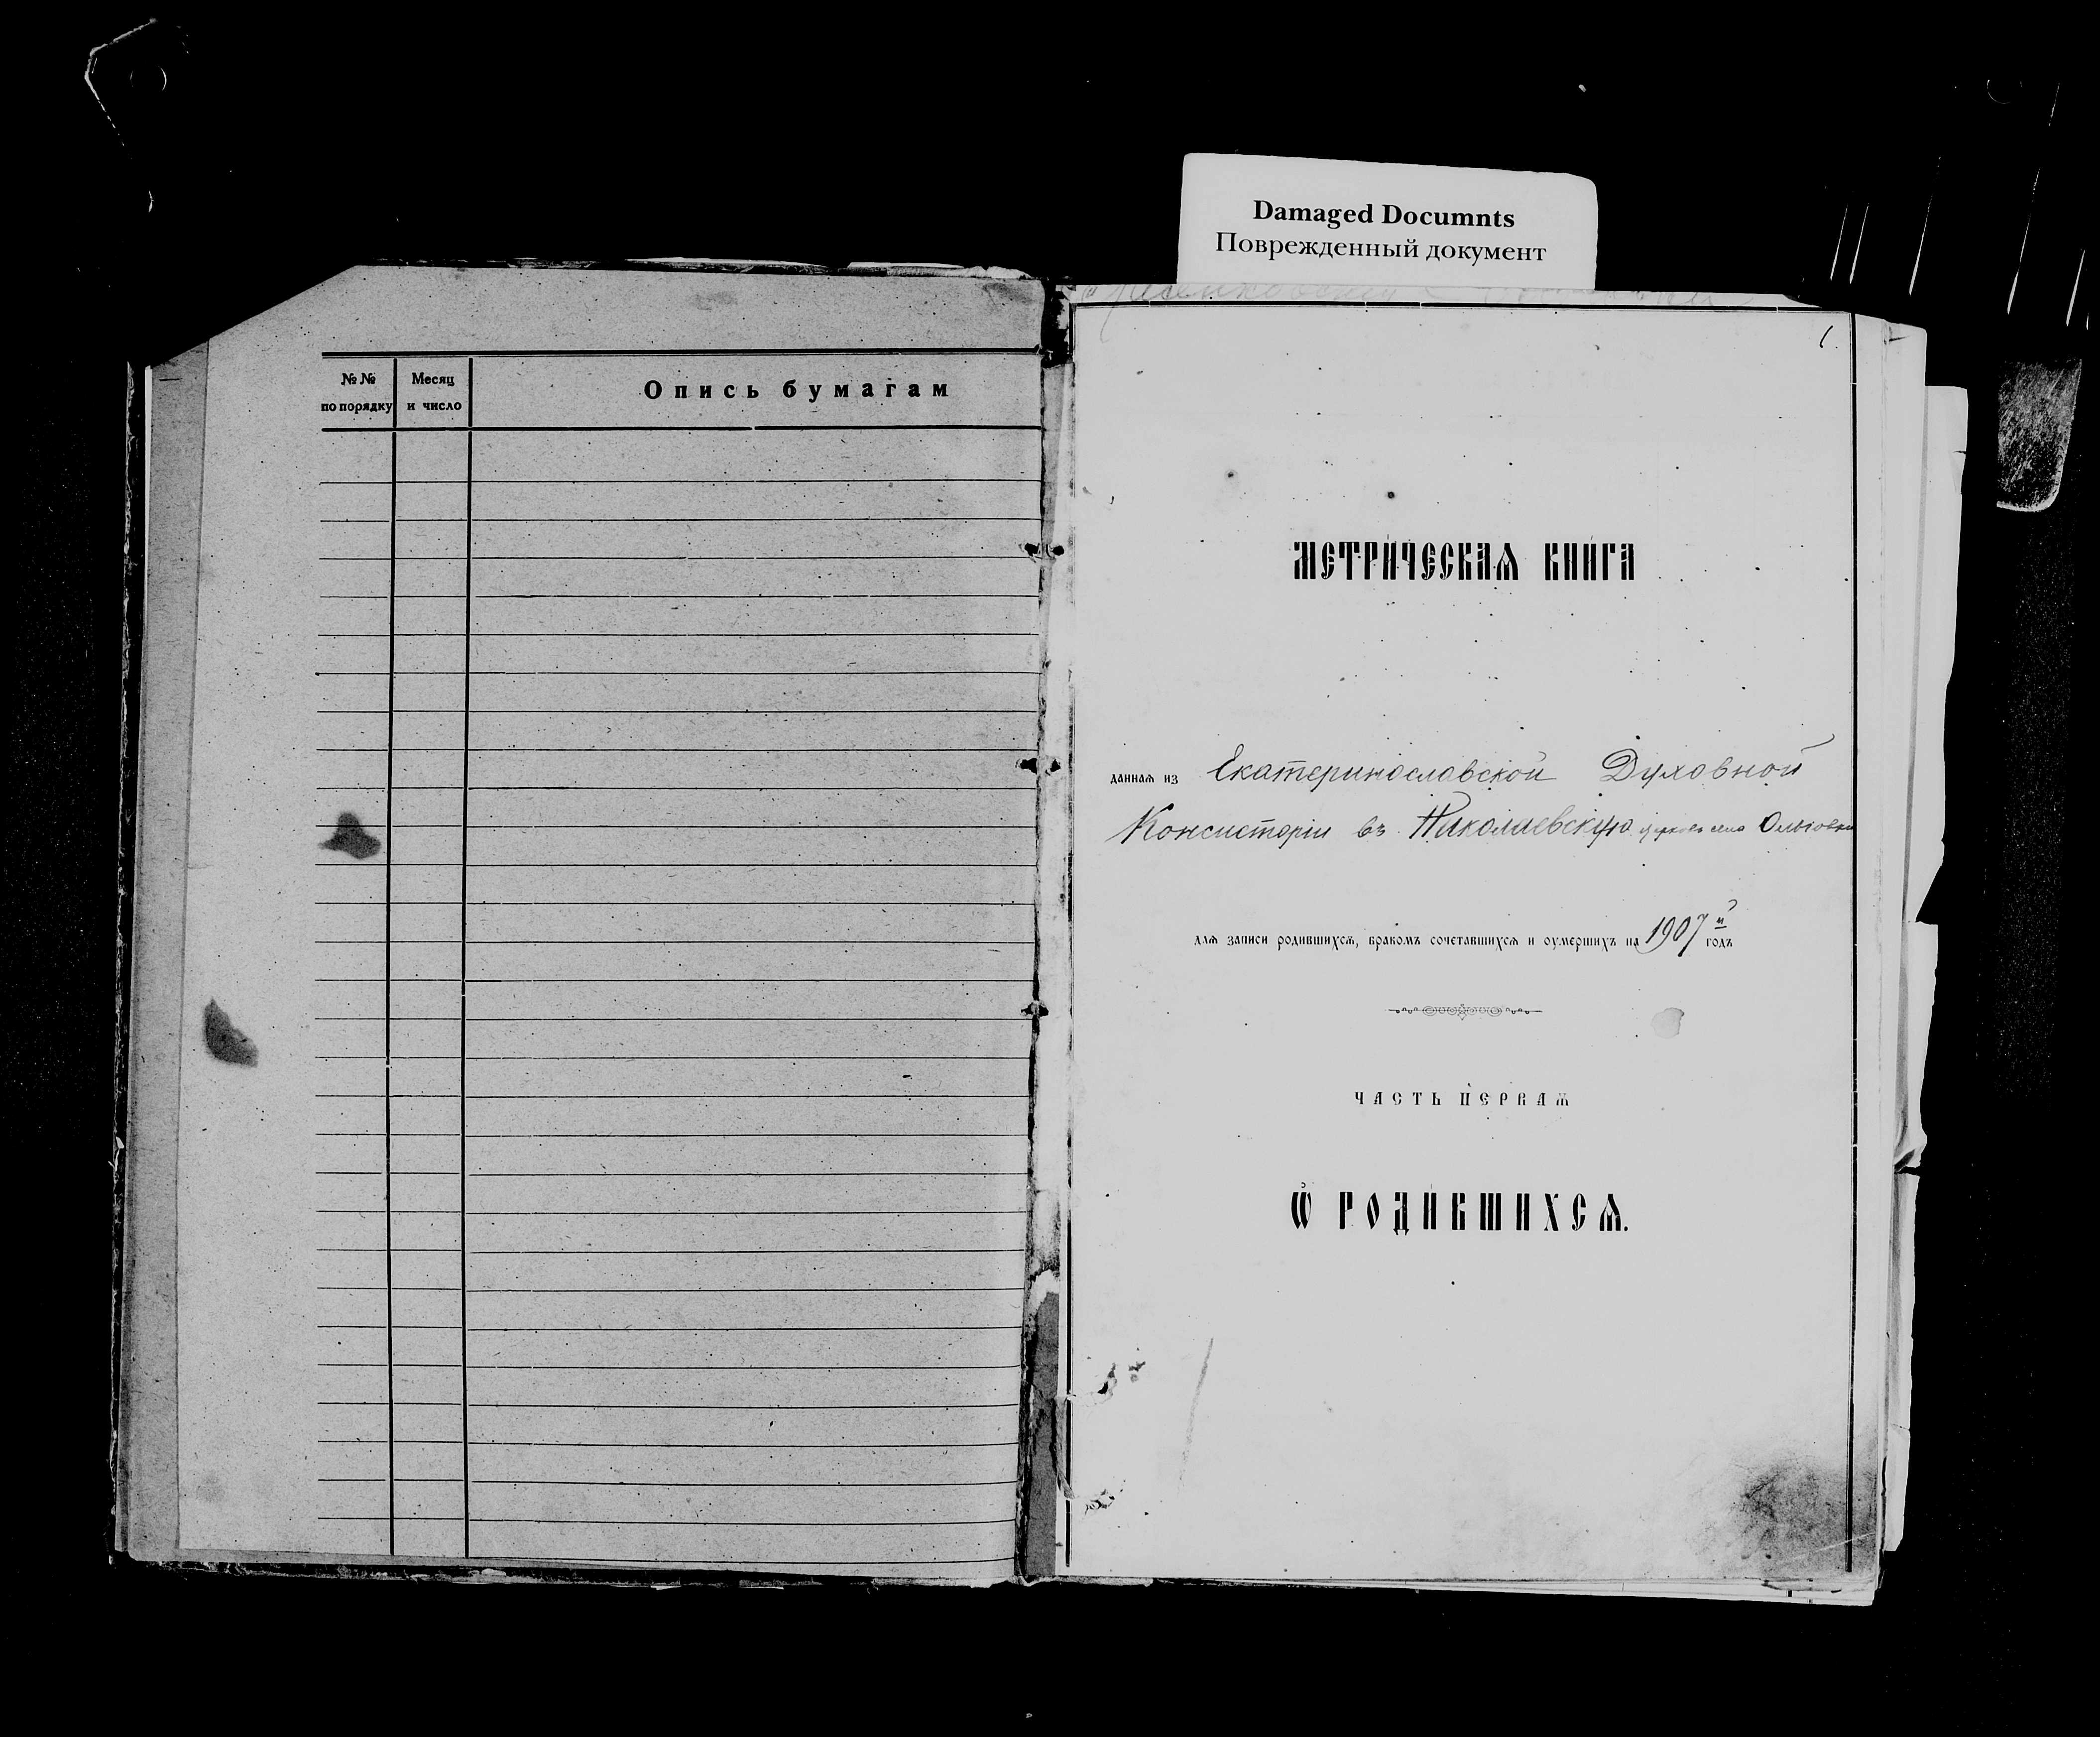 Damaged Documnts
Поврежденный документ
№ №
по порядку
Месяц
и число
Опись бумагам
1.
МЕТРИЧЕСКАѦ КНИГА
даннаѧ из Екатеринославской Духовной
Консисторіи въ Николаевскую церковь села
для записи родившихсѧ, бракомъ сочетавшихсѧ и оумершихъ на 1907й годъ
ЧАСТЬ ПЕРВАѦ
Ѡ РОДИВШИХСѦ.